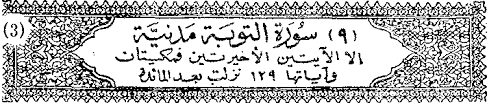 (3)
(٩) سُورَة التوبَة مَدنيَّة
إلا الآيتين الأخيرتين فمكيتان
وآياتها ١٢٩ نزلت بعد المائدة